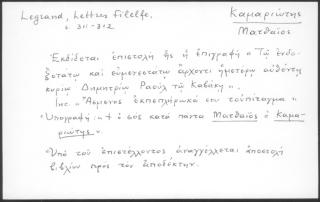 Legrand, Lettres Filelfe,
σ. 311-312
Καμαριώτης
Ματθαῖος
Ἐκδίδεται ἐπιστολὴ ἧς ἡ ἐπιγραφὴ «Τῷ ἐνδο-
ξοτάτῳ καὶ εὐμενεστάτῳ ἄρχοντι ἡμετέρῳ αὐθέντῃ
κυρίῳ Δημητρίῳ Ῥαοὺλ τῷ Καβάκῃ».
Inc. «Ἄσμενος ἐκπεπλήρωκα τοὐπίταγμα».
Ὑπογραφή: «+ ὁ σὸς κατὰ πάντα Ματθαῖος ὁ Καμα-
ριώτης».
Ὑπὸ τοῦ ἐπιστέλλοντος ἀναγγέλλεται ἀποστολὴ
βιβλίων πρὸς τὸν ἀποδέκτην.